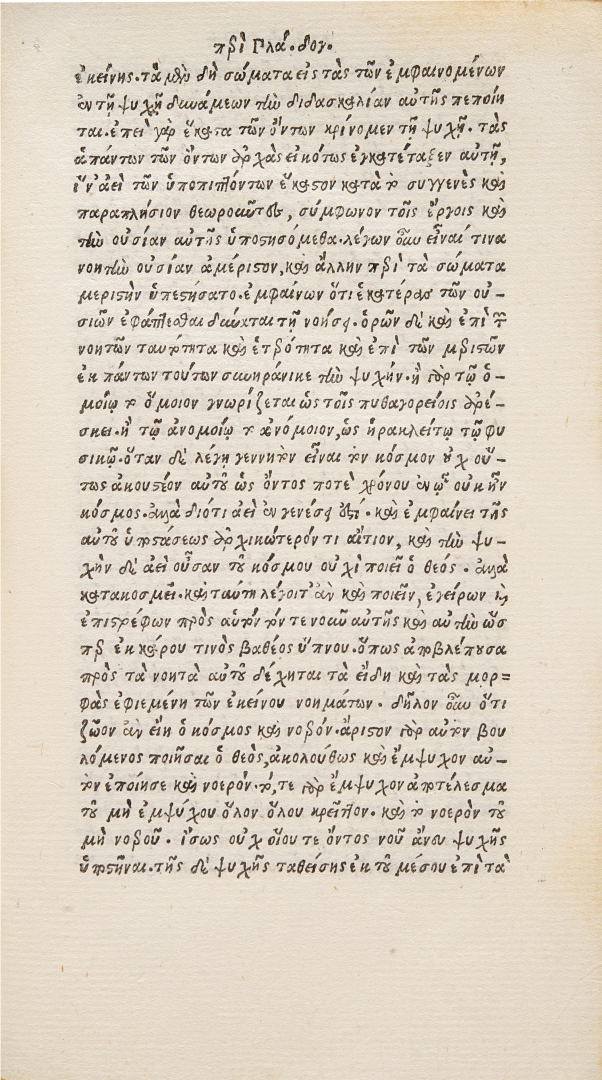 περὶ Πλά. δογ.
ἐκείνης. τὰ μὲν δὴ σώματα εἰς τὰς τῶν ἐμφαινομένων
ἐν τῇ ψυχῇ δυνάμεων τὴν διδασκαλίαν αὐτῆς πεποίη
ται. ἐπεὶ γὰρ ἕκαστα τῶν ὄντων κρίνομεν τῇ ψυχῇ. τὰς
ἁπάντων τῶν ὄντων ἀρχὰς εἰκότως ἐγκατέταξεν αὐτῇ,
ἵν' ἀεὶ τῶν ὑποπιπτόντων ἕκαστον κατὰ τὸ συγγενὲς καὶ
παραπλήσιον θεωροῦντες, σύμφωνον τοῖς ἔργοις καὶ
τὴν οὐσίαν αὐτῆς ὑποστησόμεθα. λέγων οὖν εἶναί τινα
νοητὴν οὐσίαν ἀμέριστον, καὶ ἄλλην περὶ τὰ σώματα
μεριστὴν ὑπεστήσατο. ἐμφαίνων ὅτι ἑκατέρας τῶν οὐ-
σιῶν ἐφάπτεσθαι δύναται τῇ νοήσει. ὁρῶν δὲ καὶ ἐπὶ τῶν
νοητῶν ταυτότητα καὶ ἑτερότητα καὶ ἐπὶ τῶν μεριστῶν
ἐκ πάντων τούτων συνηράνικε τὴν ψυχήν. ἢ γὰρ τῷ ὁ-
μοίῳ τὸ ὅμοιον γνωρίζεται ὡς τοῖς πυθαγορείοις ἀρέ-
σκει. ἢ τῷ ἀνομοίῳ τὸ ἀνόμοιον, ὡς ἡρακλείτῳ τῷ φυ
σικῷ. ὅταν δὲ λέγῃ γεννητὸν εἶναι τὸν κόσμον οὐχ οὕ-
τως ἀκουστέον αὐτοῦ ὡς ὄντος ποτὲ χρόνου ἐν ᾧ οὐκ ἦν
κόσμος. ἀλλὰ διότι ἀεὶ ἐν γενέσει ἐστί. καὶ ἐμφαίνει τῆς
αὐτοῦ ὑποστάσεως ἀρχικώτερόν τι αἴτιον, καὶ τὴν ψυ-
χὴν δὲ ἀεὶ οὖσαν τοῦ κόσμου οὐχὶ ποιεῖ ὁ θεός. ἀλλὰ
κατακοσμεῖ. καὶ ταύτῃ λέγοιτ' ἂν καὶ ποιεῖν, ἐγείρων καὶ
ἐπιστρέφων πρὸς αὑτὸν τόν τε νοῦν αὐτῆς καὶ αὐτὴν ὥσ
περ ἐκ κάρου τινὸς βαθέος ὕπνου. ὅπως ἀποβλέπουσα
πρὸς τὰ νοητὰ αὐτοῦ δέχηται τὰ εἴδη καὶ τὰς μορ=
φὰς ἐφιεμένη τῶν ἐκείνου νοημάτων. δῆλον οὖν ὅτι
ζῷον ἂν εἴη ὁ κόσμος καὶ νοερόν. ἄριστον γὰρ αὐτὸν βου
λόμενος ποιῆσαι ὁ θεός, ἀκολούθως καὶ ἔμψυχον αὐ-
τὸν ἐποίησε καὶ νοερόν. τό, τε γὰρ ἔμψυχον ἀποτέλεσμα
τοῦ μὴ ἐμψύχου ὅλον ὅλου κρεῖττον. καὶ τὸ νοερὸν τοῦ
μὴ νοεροῦ. ἴσως οὐχ οἵου τε ὄντος νοῦ ἄνευ ψυχῆς
ὑποστῆναι. τῆς δὲ ψυχῆς ταθείσης ἐκ τοῦ μέσου ἐπὶ τὰ